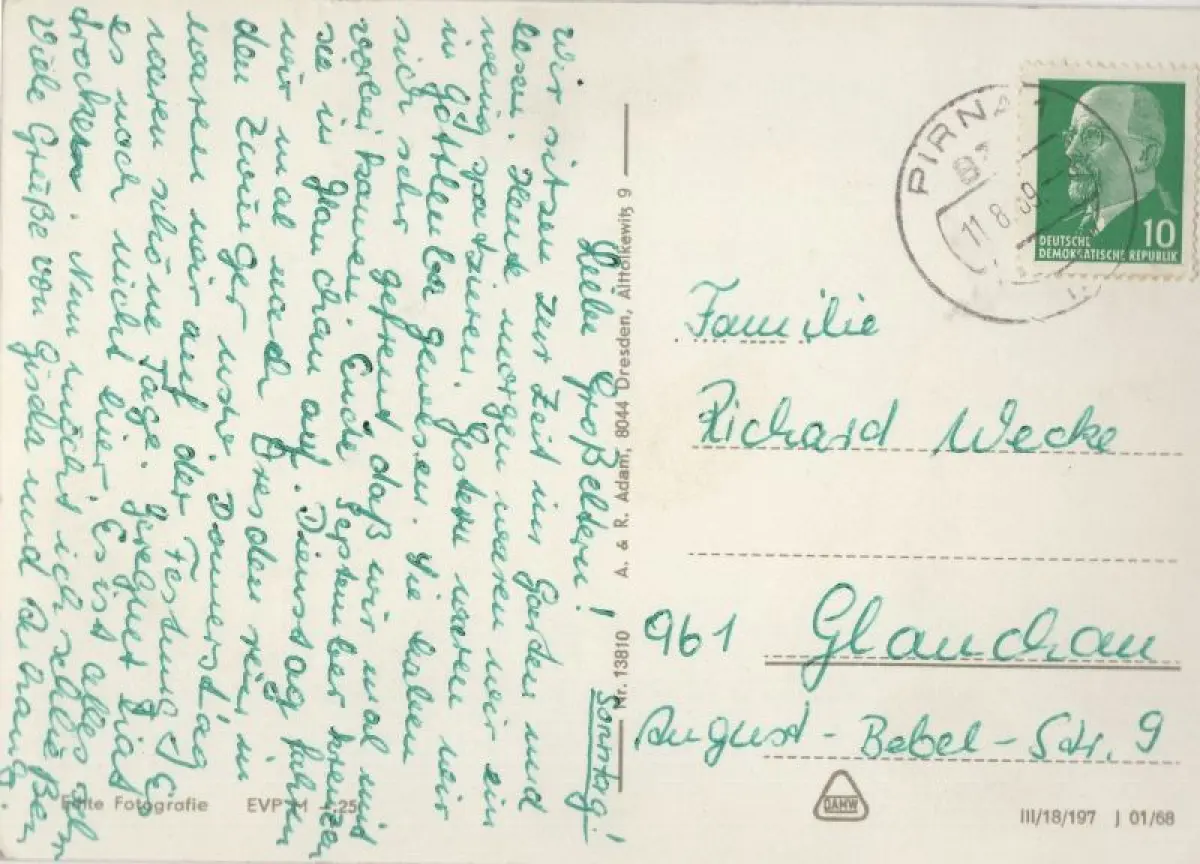 Sonntag!
Liebe Großeltern!
Wir sitzen zur Zeit im Garten und
lesen. Heute morgen waren wir ein
wenig spazieren. Gestern waren wir
in Gottleuba gewesen. Sie haben
sich sehr gefreut daß wir mal mit
vorbei kamen. Ende September kreuzen
sie in Glauchau auf. Dienstag fahren
wir mal nach Dresden rein in
den Zwinger usw. Donnerstag
waren wir auf der Festung. Es
waren schöne Tage. Geregnet hat
es noch nicht hier. Es ist alles sehr
trocken. Nun möchte ich schließen
Viele Grüße von Gisela und
Echte Fotografie EVP M -.25
Nr. 13810 A. & R. Adam, 8044 Dresden, Alttolkewitz 9
PIRNA
11.8.69
10
DEUTSCHE
DEMOKRATISCHE REPUBLIK
Familie
Richard Wecke
961 Glauchau
August-Bebel-Str. 9
DAMW
III/18/197 J 01/68